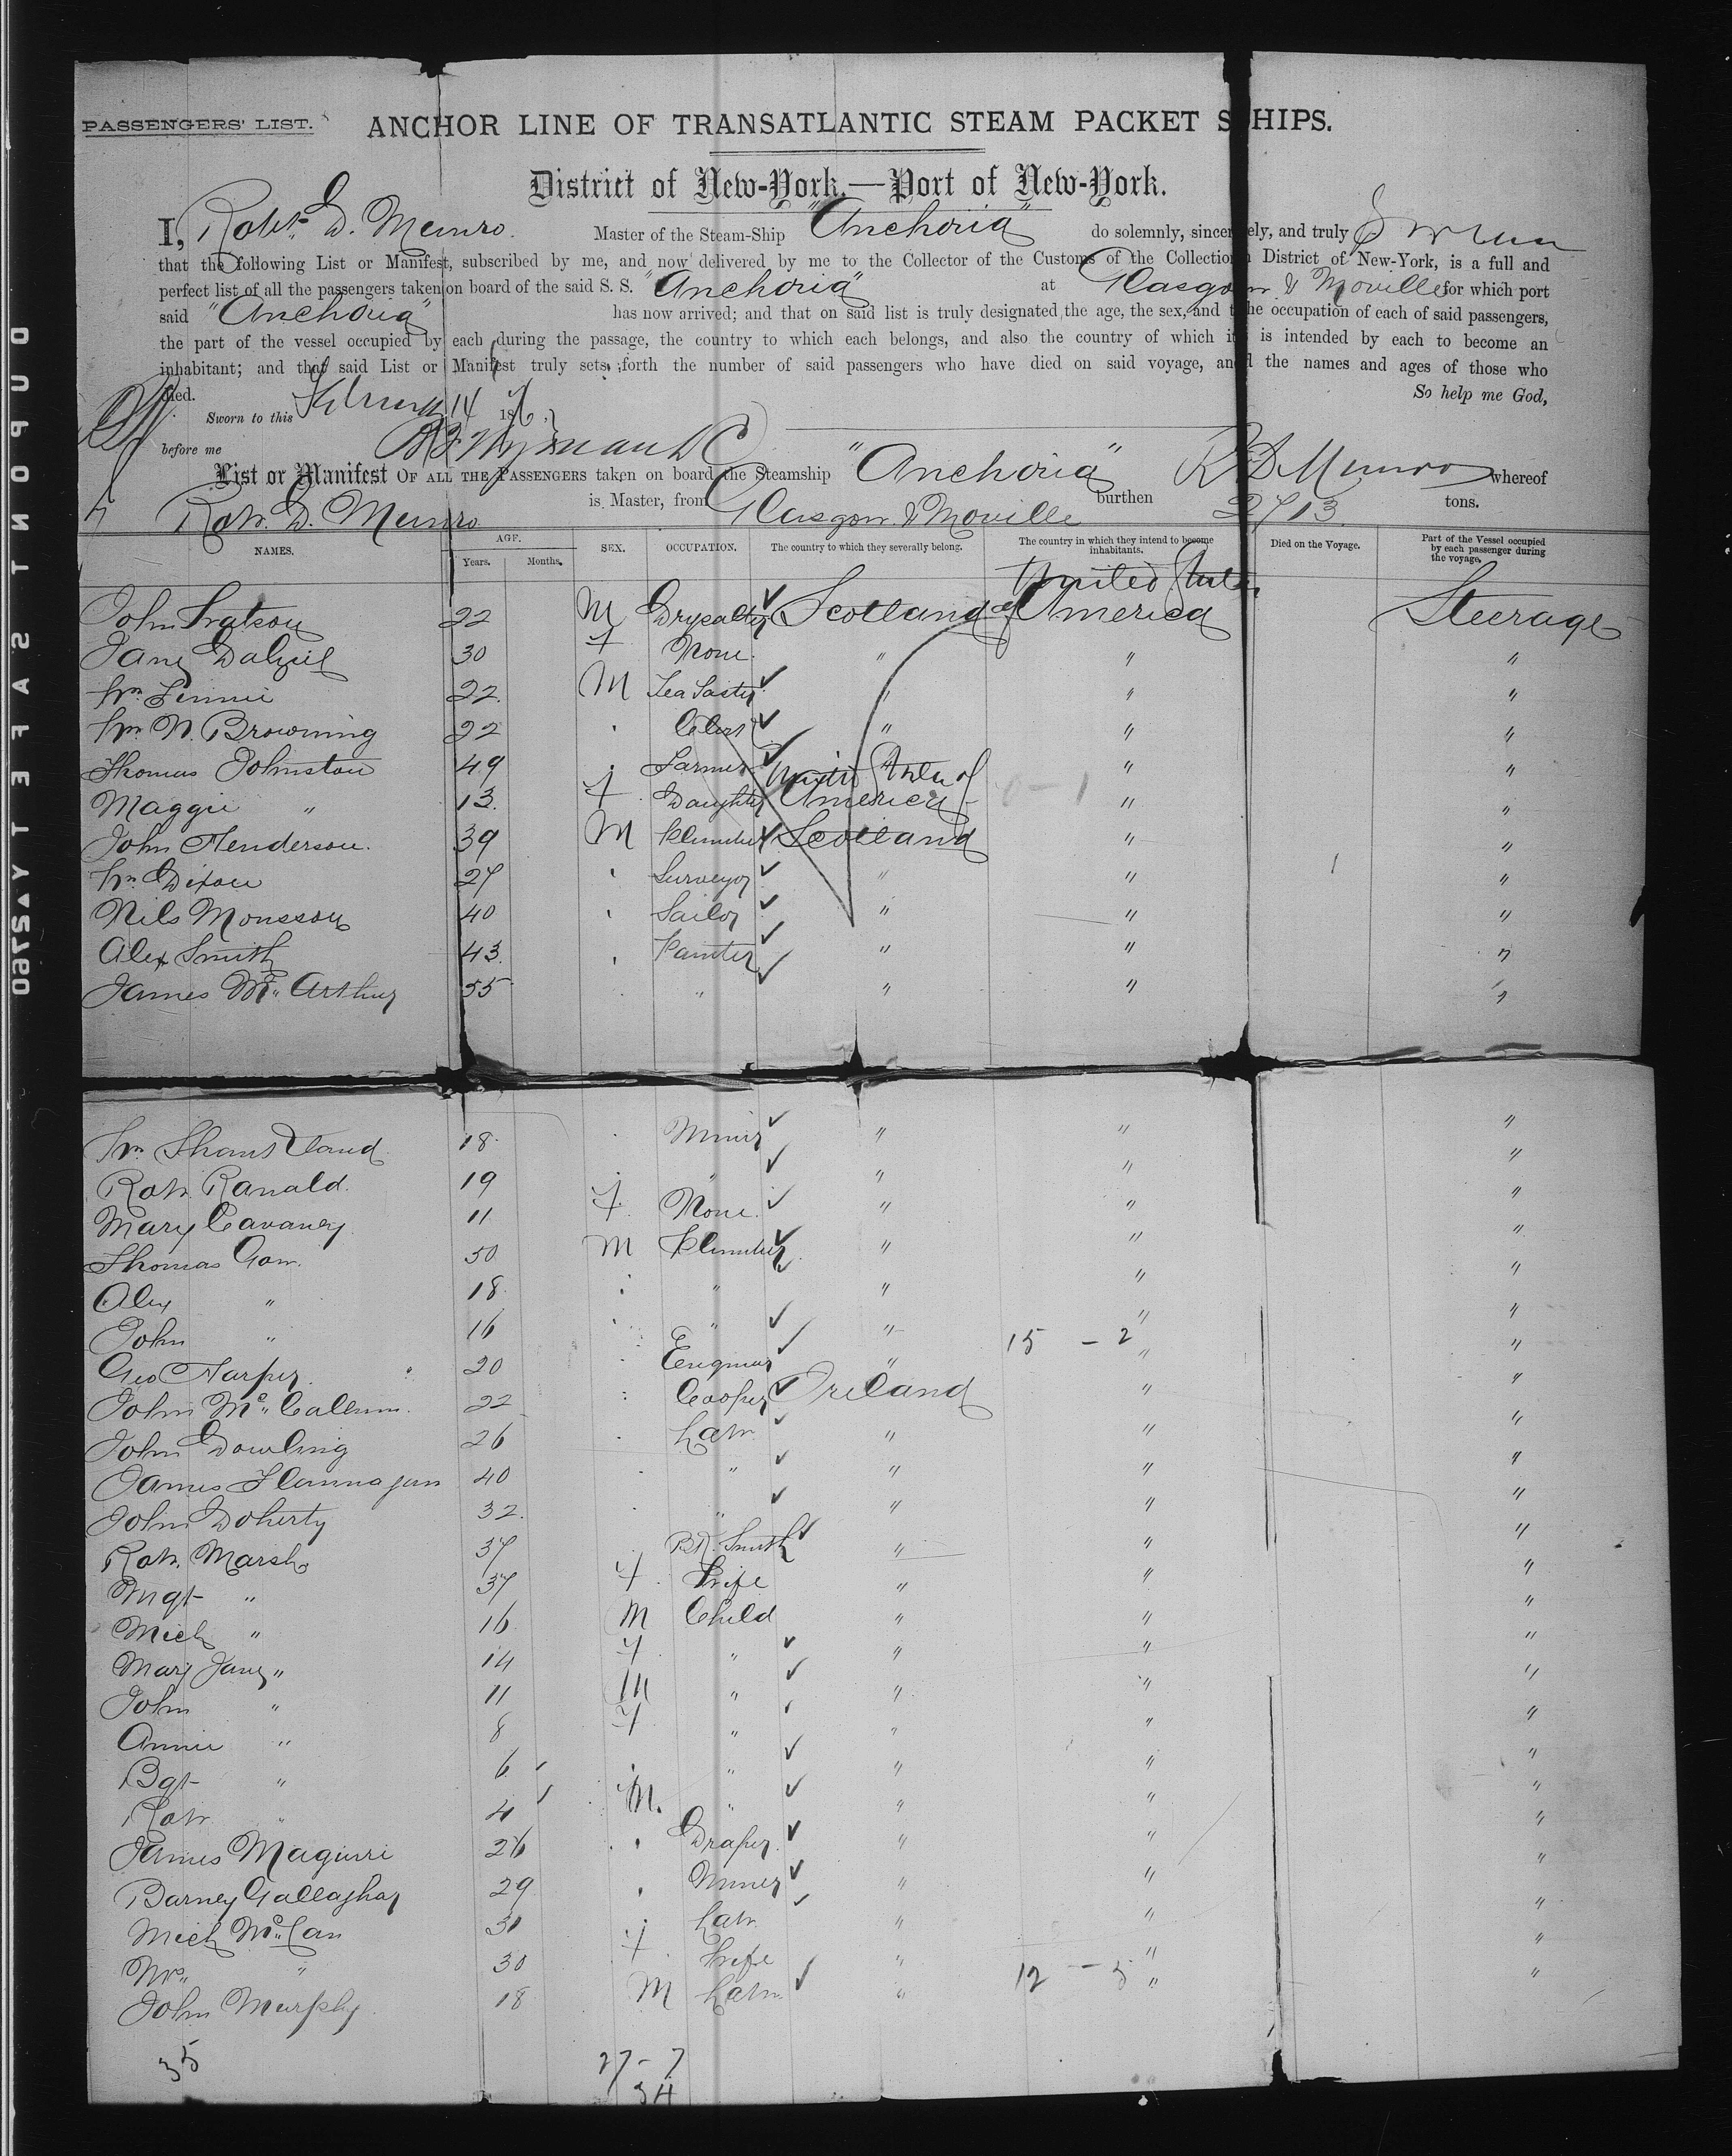 PASSENGERS' LIST. ANCHOR LINE OF TRANSATLANTIC STEAM PACKET SHIPS.
District of New-York,—Port of New-York.
I, Robt. D. Munro. Master of the Steam-Ship "Anchoria" do solemnly, sincerely, and truly Swear
that the following List or Manifest, subscribed by me, and now delivered by me to the Collector of the Customs of the Collection District of New-York, is a full and
perfect list of all the passengers taken on board of the said S. S. "Anchoria" at Glasgow & Moville for which port
said "Anchoria" has now arrived; and that on said list is truly designated the age, the sex, and the occupation of each of said passengers,
the part of the vessel occupied by each during the passage, the country to which each belongs, and also the country of which it is intended by each to become an
inhabitant; and that said List or Manifest truly sets forth the number of said passengers who have died on said voyage, and the names and ages of those who
died. So help me God,
Sworn to this February 14 18
before me
List or Manifest OF ALL THE PASSENGERS taken on board the Steamship "Anchoria" R D Munro whereof
Robt. D. Munro is Master, from Glasgow & Moville burthen 2713 tons.
NAMES. AGE. Years. Months. SEX. OCCUPATION. The country to which they severally belong. The country in which they intend to become inhabitants. Died on the Voyage. Part of the Vessel occupied by each passenger during the voyage.
John Watson 22 M Drysalter Scotland United States of America Steerage
Jane Dalziel 30 f None " " "
Wm. Lennie 22 M Tea Taster " " "
Wm. N. Browning 22 " Clerk " " "
Thomas Johnston 49 " Farmer United States of America " "
Maggie " 13 f Daughter " "
John Henderson 39 M Plumber Scotland " "
Wm. Dixon 27 " Surveyor " " "
Nils Monsson 40 " Sailor " " "
Alex Smith 43 " Painter " " "
James Mc. Arthur 55 " " " " "
Wm 18 " Miner " " "
Robt. Ranald 19 " " " " "
Mary Cavaney 11 f None " " "
Thomas Gow 50 M Plumber " " "
Alex " 18 " " " " "
John " 16 " " " " "
15 - 2
Geo Harper 20 " Engineer " " "
John Mc. Callum 22 " Cooper Ireland " "
John Dowling 26 " Labr. " " "
James Flannagan 40 " " " " "
John Doherty 32 " " " " "
Robt. Marsh 37 " Bk. Smith " " "
Mgt " 37 f Wife " " "
Mich " 16 M Child " " "
Mary Jane " 14 f " " " "
John " 11 M " " " "
Annie " 8 f " " " "
Bgt " 6 " " " " "
Robt " 4 M. " " " "
James Maguire 26 " Draper " " "
Barney Gallaghar 29 " Miner " " "
Mich Mc. Can 31 " Labr. " " "
Mrs. " 30 f Wife " " "
12 - 5
John Murphy 18 M Labr. " " "
35 27 - 7
34